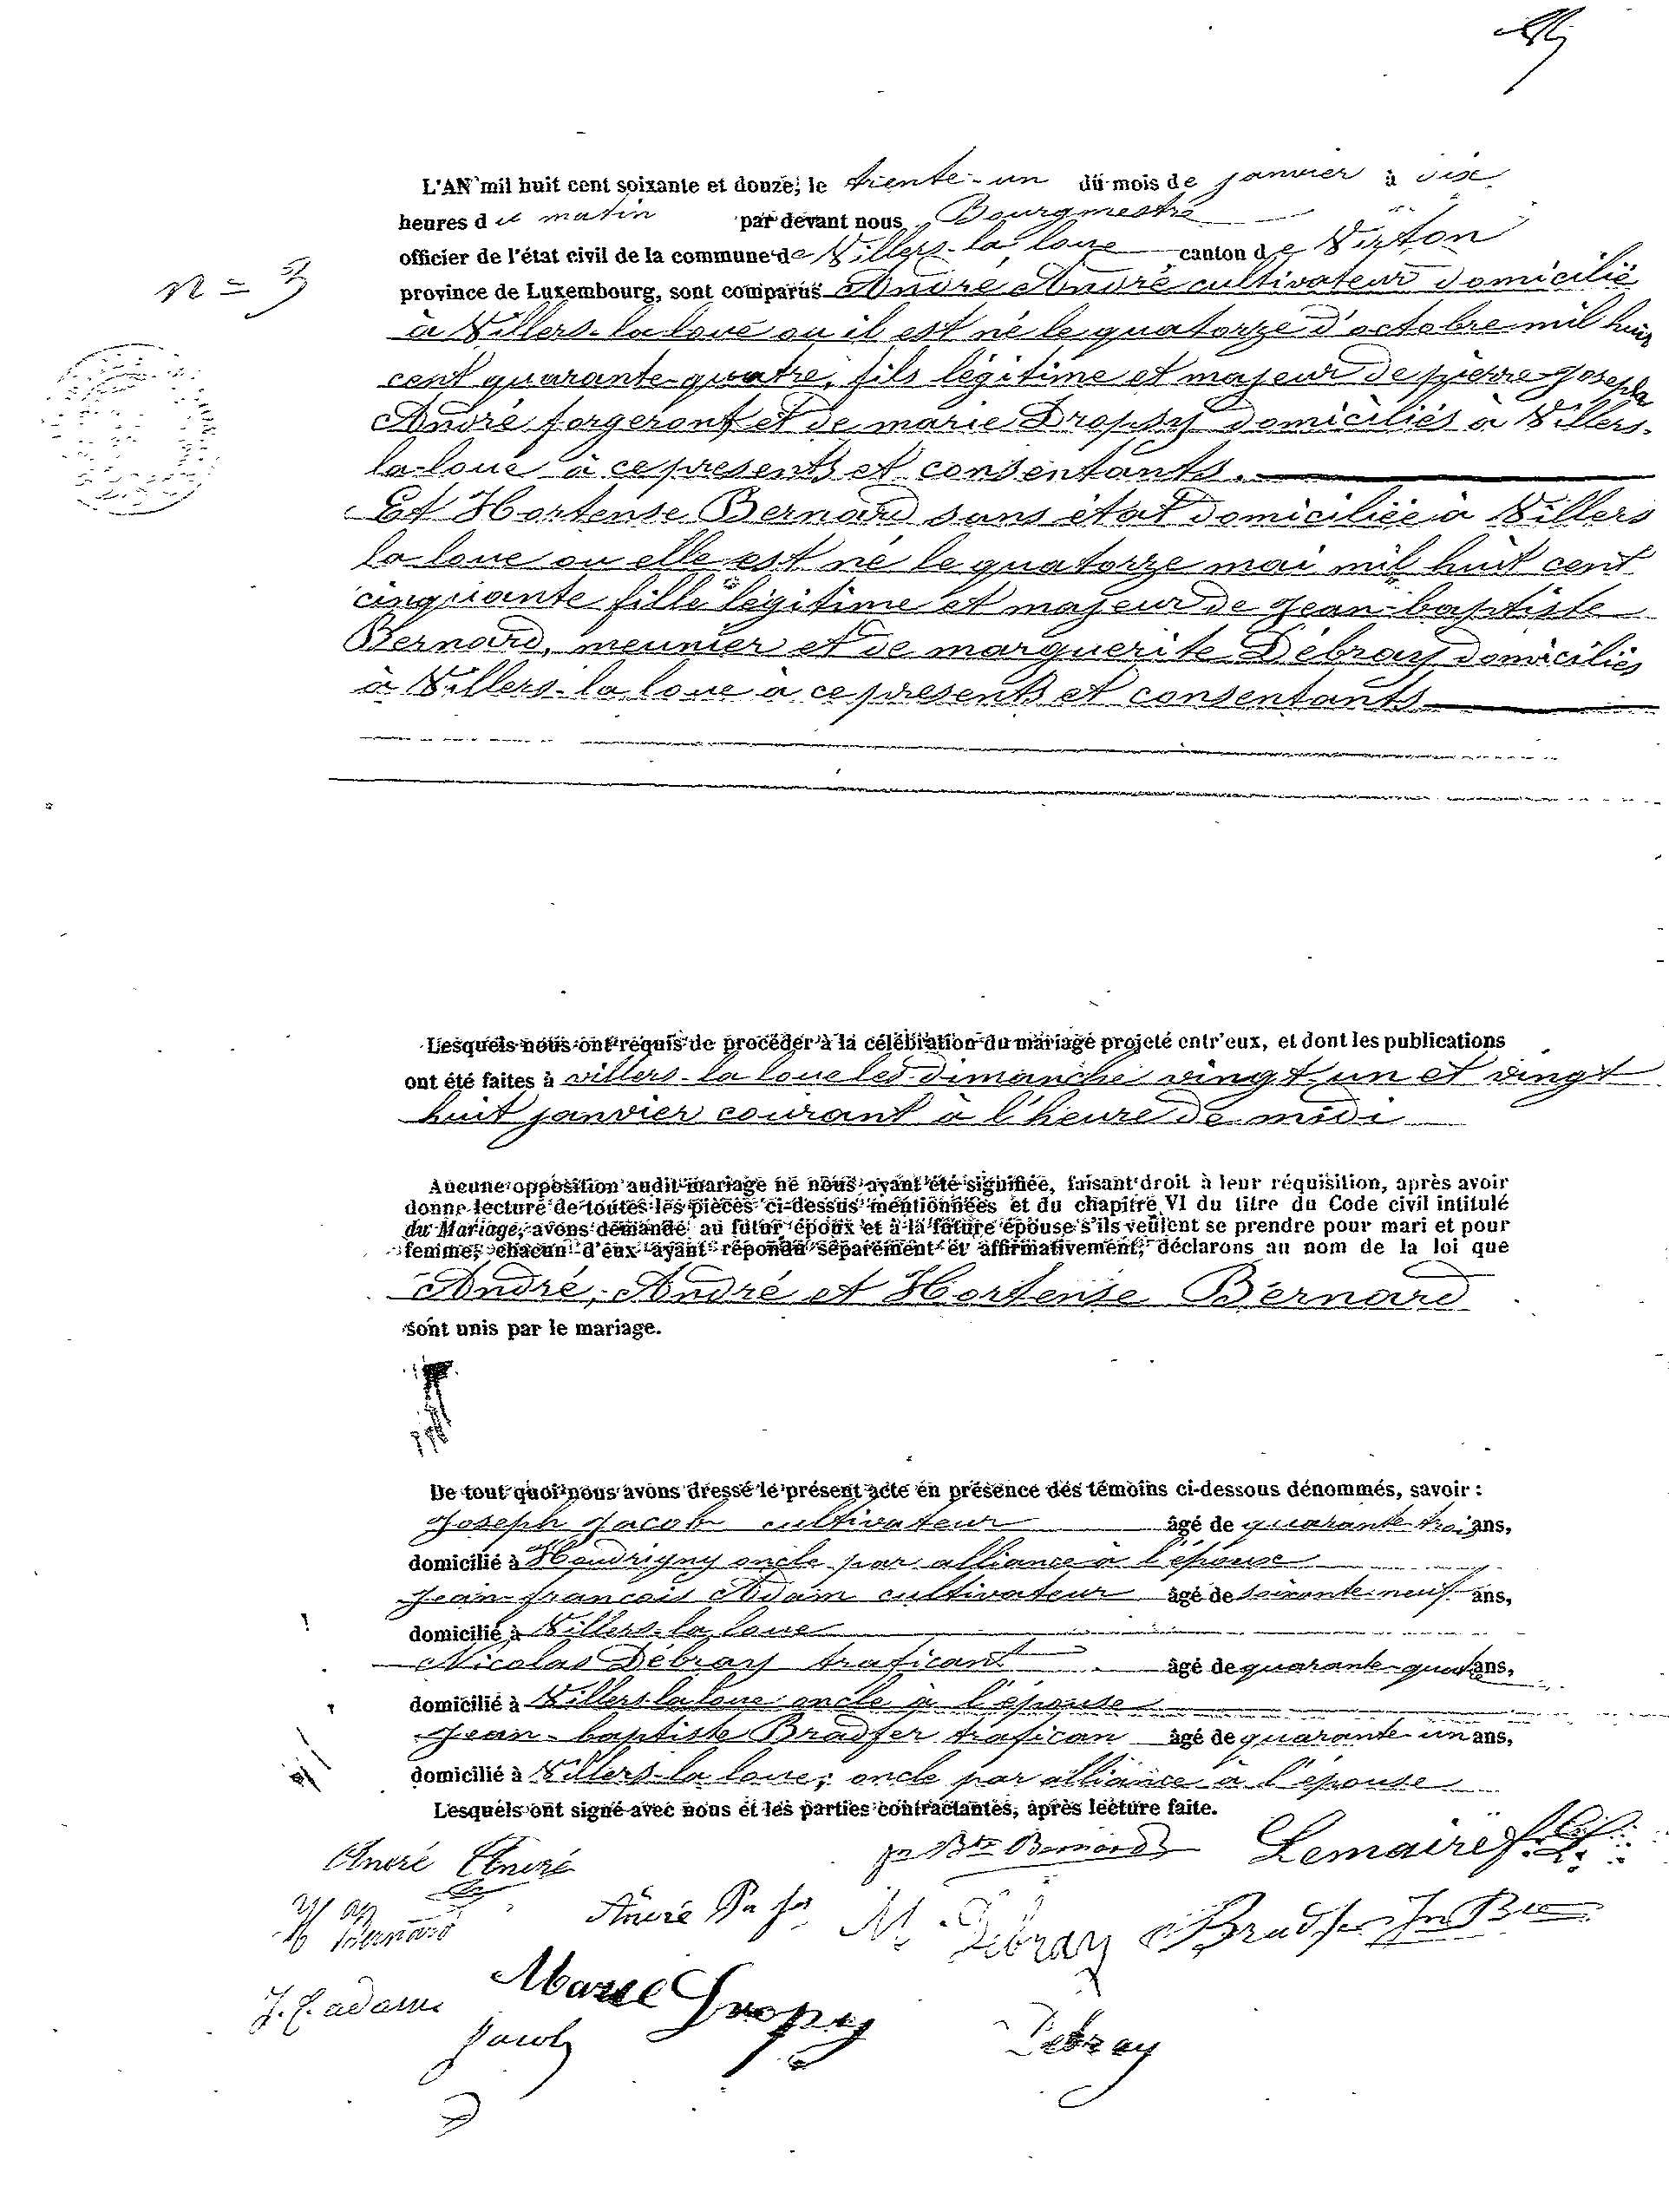 n = 3
L'AN mil huit cent soixante et douze, le trente-un du mois de janvier à dix
heures du matin par devant nous Bourgmestre
officier de l'état civil de la commune de Villers-la-loue canton de Virton
province de Luxembourg, sont comparus André André cultivateur domicilié
à Villers-la-loue ou il est né le quatorze d'octobre mil huit
cent quarante-quatre, fils légitime et majeur de pierre-Joseph
André forgeront et de marie Dropsy domiciliés à Villers-
la-loue à ce presents et consentants.
Et Hortense Bernard sans état domiciliée à Villers
la loue ou elle est né le quatorze mai mil huit cent
cinquante fille légitime et majeur de Jean-baptiste
Bernard, meunier et de marguerite Débray domiciliés
à Villers-la loue à ce presents et consentants
Lesquels nous ont requis de procéder à la célébration du mariage projeté entr'eux, et dont les publications
ont été faites à villers-la loue les dimanche vingt-un et vingt
huit janvier courant à l'heure de midi
Aucune opposition audit mariage ne nous ayant été signifiée, faisant droit à leur réquisition, après avoir
donné lecture de toutes les pièces ci-dessus mentionnées et du chapitre VI du titre du Code civil intitulé
du Mariage, avons demandé au futur époux et à la future épouse s'ils veulent se prendre pour mari et pour
femme; chacun d'eux ayant répondu séparément et affirmativement, déclarons au nom de la loi que
André, André et Hortense Bernard
sont unis par le mariage.
De tout quoi nous avons dressé le présent acte en présence des témoins ci-dessous dénommés, savoir :
Joseph Jacob cultivateur âgé de quarante trois ans,
domicilié à Houdrigny oncle par alliance à l'épouse
Jean-francois Adam cultivateur âgé de soixante-neuf ans,
domicilié à Villers-la loue
Nicolas Débray traficant âgé de quarante-quatre ans,
domicilié à Villers-la loue oncle à l'épouse
Jean-baptiste Bradfer trafican âgé de quarante-un ans,
domicilié à Villers-la loue, oncle par alliance à l'épouse
Lesquels ont signé avec nous et les parties contractantes, après lecture faite.
André André Jn Bte Bernard Lemaire
H Bernard André M. Débray Bradfer Jn Bte
J. f. adam Marie Dropsy
Jacob Debray